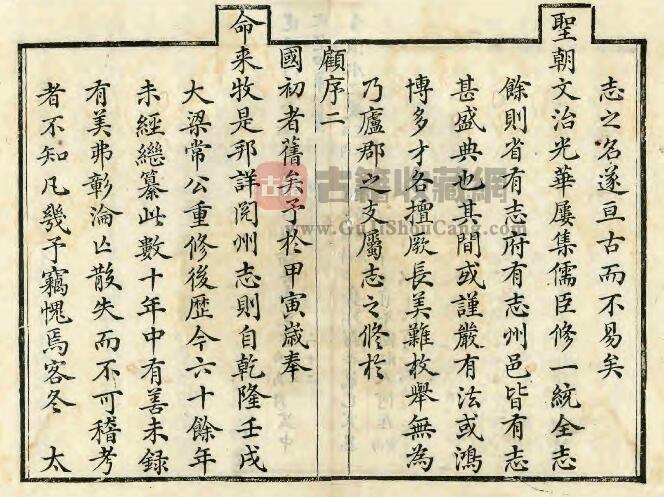 志之名遂亘古而不易矣
聖朝文治光華屢集儒臣修一統全志
餘則省有志府有志州邑皆有志
甚盛典也其間或謹嚴有法或鴻
博多才各擅厥長美難枚舉無為
乃廬郡之支屬志之修於
顧序二
國初者舊矣予於甲寅歲奉
命来牧是邦詳閱州志則自乾隆壬戌
大梁常公重修後歷今六十餘年
未經繼纂此數十年中有善未録
有美弗彰淪亡散失而不可稽考
者不知凡幾予竊愧焉客冬 太
古籍收藏網
www.GuJiShouCang.com